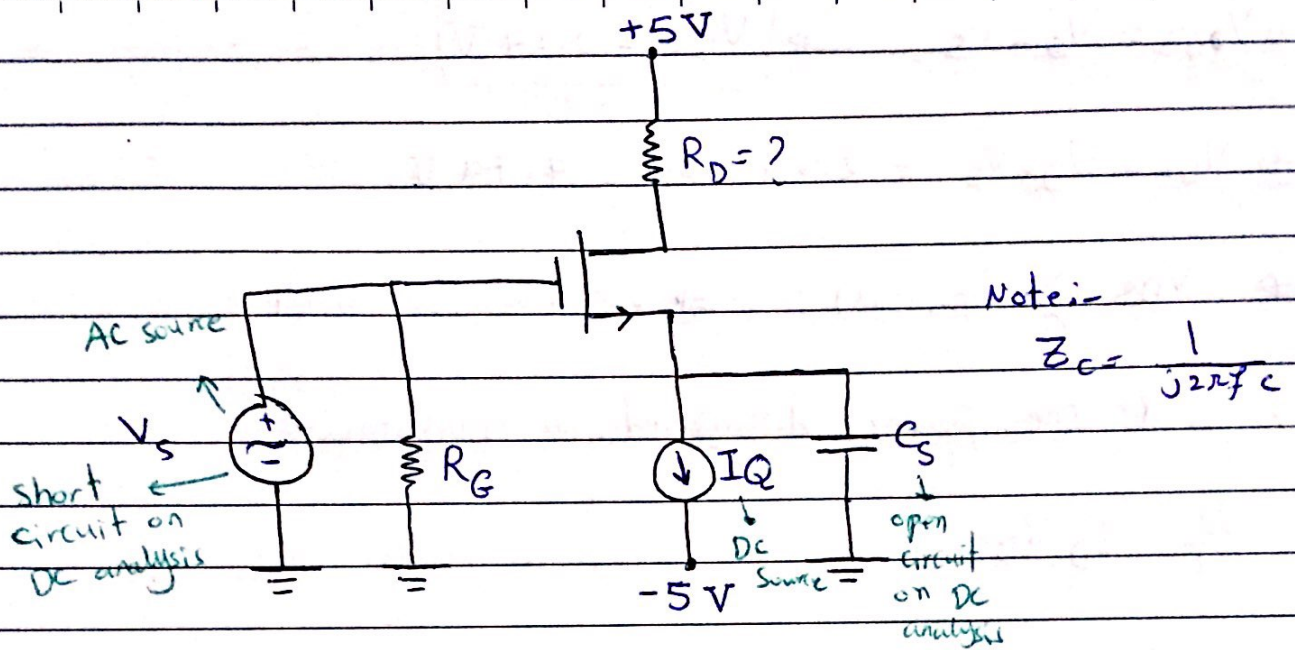 +5V
R_D = ?
Note:-
Z_C = 1 / j2πfc
AC source
V_S
+
-
short circuit on DC analysis
R_G
IQ
DC Source
-5V
C_S
open circuit on DC analysis